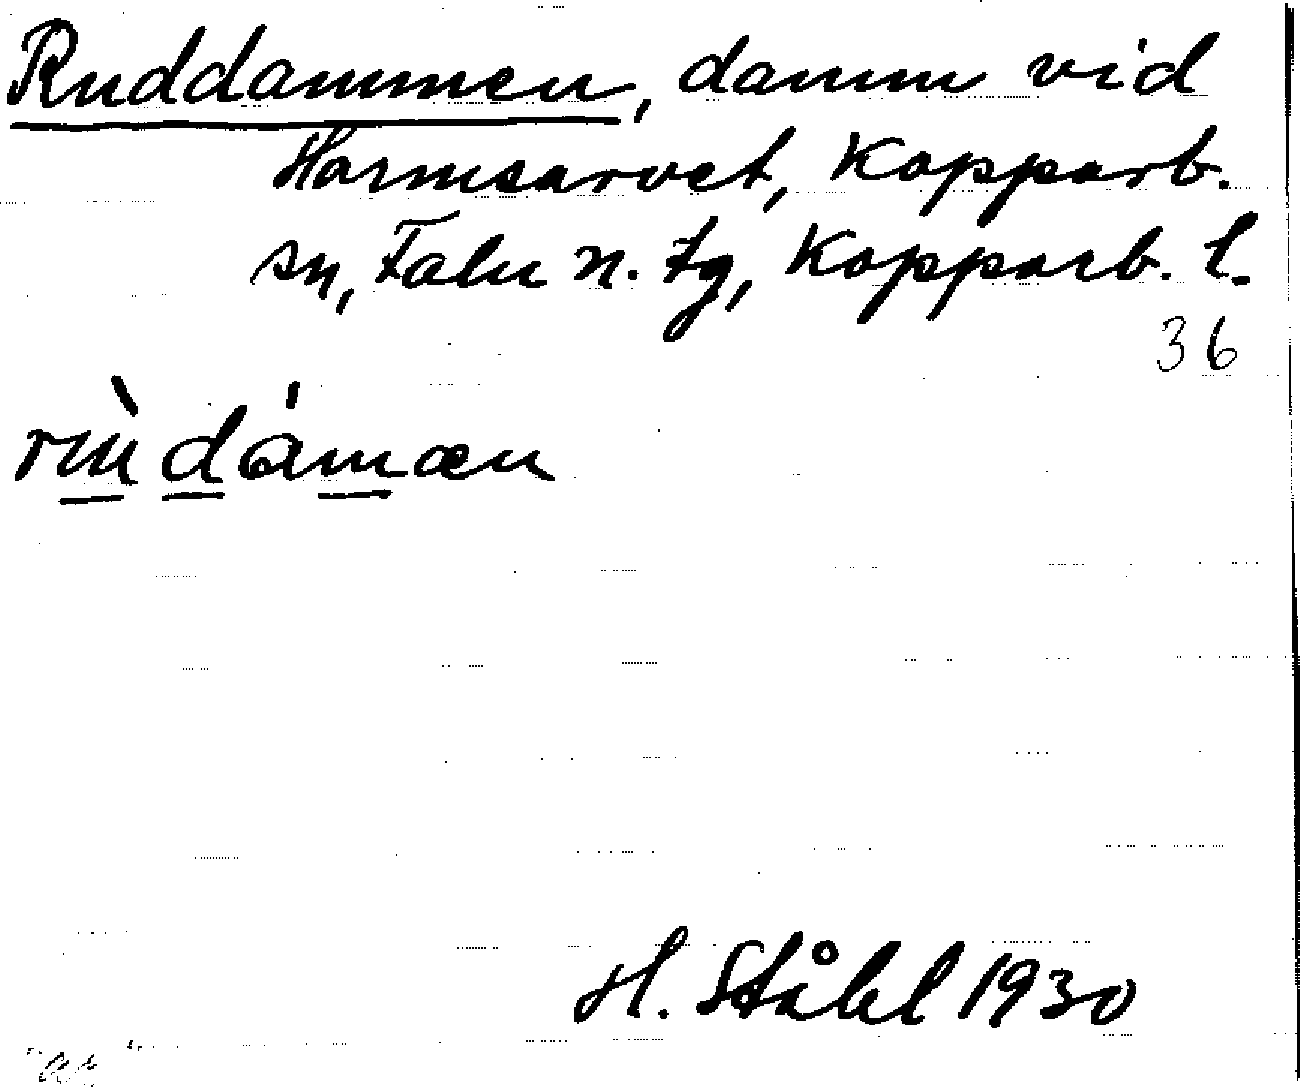 Ruddammen, damm vid
Harmsarvet, Kopparb.
sn, Falu n. tg, Kopparb. l.
36
H. Ståhl 1930